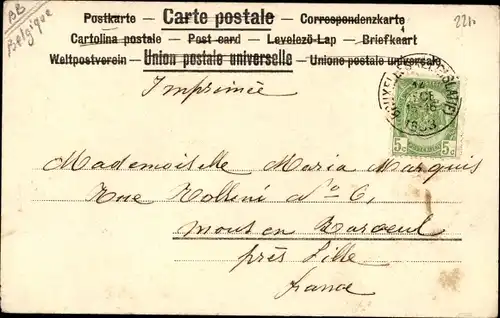 BB
Belgique
221.
Postkarte — Carte postale — Correspondenzkarte
Cartolina postale — Post card — Levelező-Lap — Briefkaart
Weltpostverein — Union postale universelle — Unione postale universale
Imprimée
5c 5c
Mademoiselle Maria Marquis
Rue Rollini No 6,
Mons en Baroeul
près Lille
France